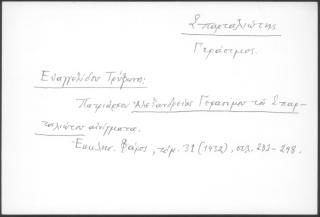 Σπαρταλιώτης
Γεράσιμος.
Εὐαγγελίδου Τρύφωνος:
Πατριάρχου Ἀλεξανδρείας Γερασίμου τοῦ Σπαρ-
ταλιώτου αἰνίγματα.
Ἐκκλησ. Φάρος, τόμ. 31 (1932), σελ. 283-298.